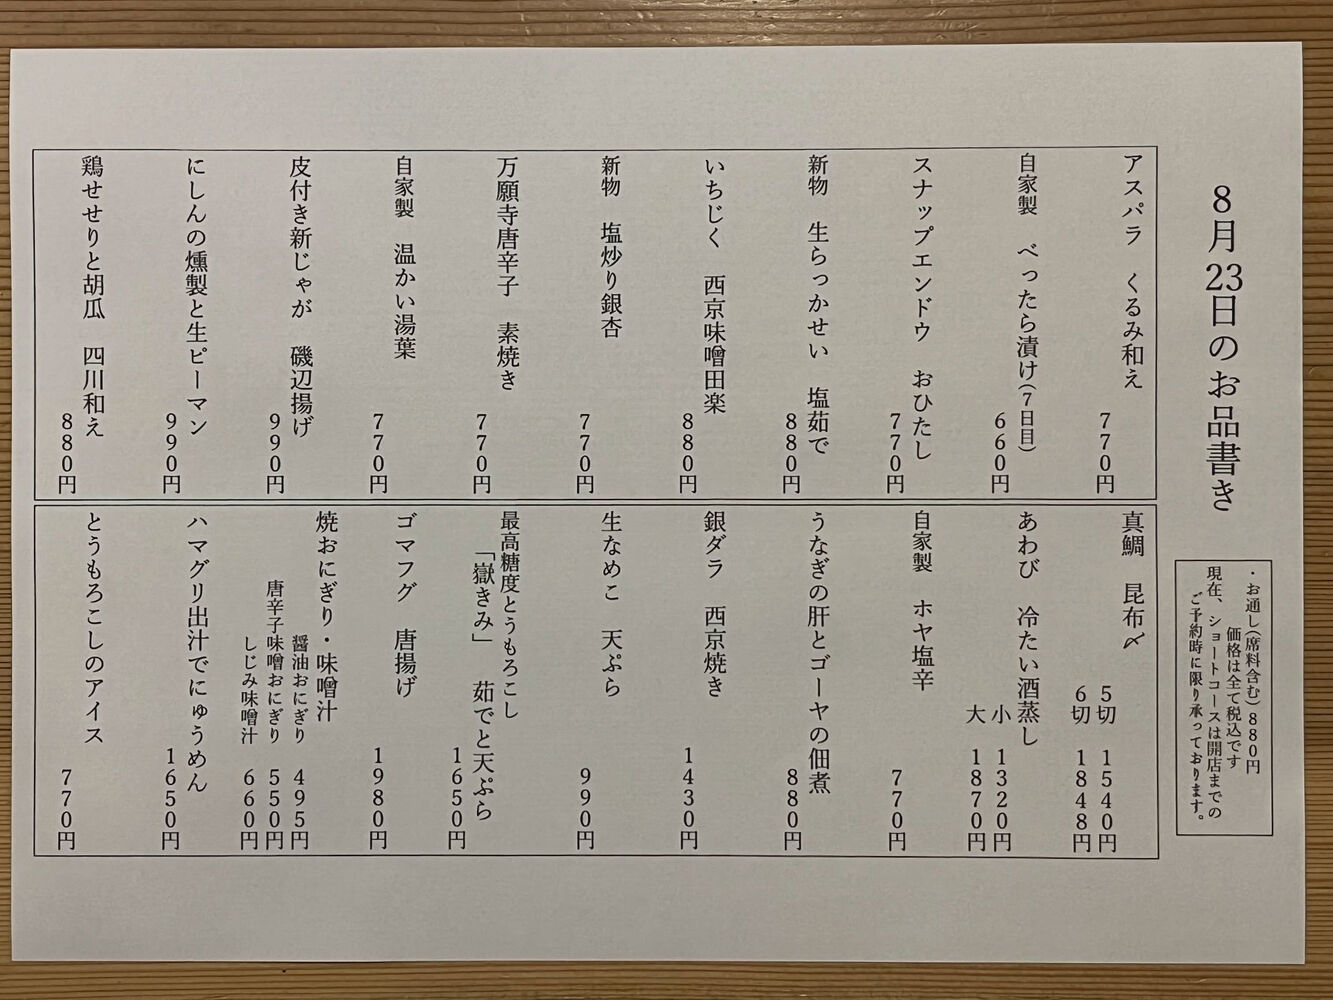 8月23日のお品書き
・お通し(席料含む)880円
価格は全て税込です
現在、ショートコースは開店までの
ご予約時に限り承っております。
アスパラ くるみ和え
770円
自家製 べったら漬け(7日目)
660円
スナップエンドウ おひたし
770円
新物 生らっかせい 塩茹で
880円
いちじく 西京味噌田楽
880円
新物 塩炒り銀杏
770円
万願寺唐辛子 素焼き
770円
自家製 温かい湯葉
770円
皮付き新じゃが 磯辺揚げ
990円
にしんの燻製と生ピーマン
990円
鶏せせりと胡瓜 四川和え
880円
真鯛 昆布〆
5切 1540円
6切 1848円
あわび 冷たい酒蒸し
小 1320円
大 1870円
自家製 ホヤ塩辛
770円
うなぎの肝とゴーヤの佃煮
880円
銀ダラ 西京焼き
1430円
生なめこ 天ぷら
990円
最高糖度とうもろこし
「嶽きみ」 茹でと天ぷら
1650円
ゴマフグ 唐揚げ
1980円
焼おにぎり・味噌汁
醤油おにぎり 495円
唐辛子味噌おにぎり 550円
しじみ味噌汁 660円
ハマグリ出汁でにゅうめん
1650円
とうもろこしのアイス
770円